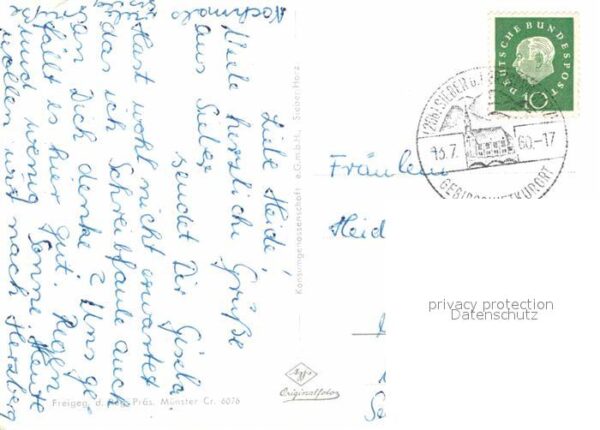 Liebe Heide!
Viele herzliche Grüße
aus Sieber
sendet Dir Gisela
Hast wohl nicht erwartet
das ich Schreibfaule auch
an Dich denke? Uns ge-
fällt es hier gut. Regen
und wenig Sonne. Heute
wollen wir nach Herzberg
Nochmals
Fräulein
Heid
DEUTSCHE BUNDESPOST
10
SIEBER
13.7.60.-17
Konsumgenossenschaft e.G.m.b.H., Sieber Harz
Agfa
Originalfoto
Freigeg. d. Reg. Präs. Münster Cr. 6076
privacy protection
Datenschutz